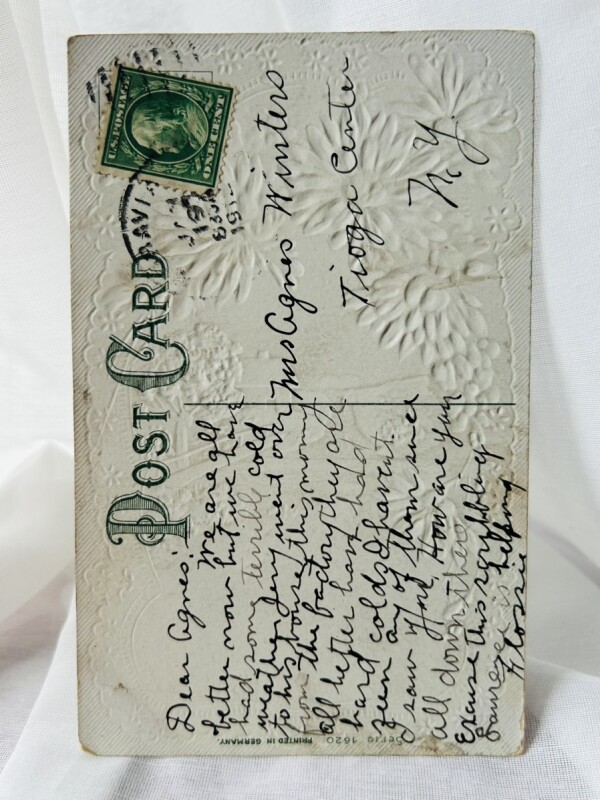 POST CARD
U.S. POSTAGE
ONE CENT
Dear Agnes:
We are all
better now but we have
had some terrible cold
weather Jery went over
to his house this morning
from the factory they are
all better have had
hard colds I havent
seen any of them since
I saw York. How are you
all down there
Excuse this scribbling
is helping
Flossie
Mrs Agnes Winters
Tioga Center
N. Y.
Serie 1620
PRINTED IN GERMANY.